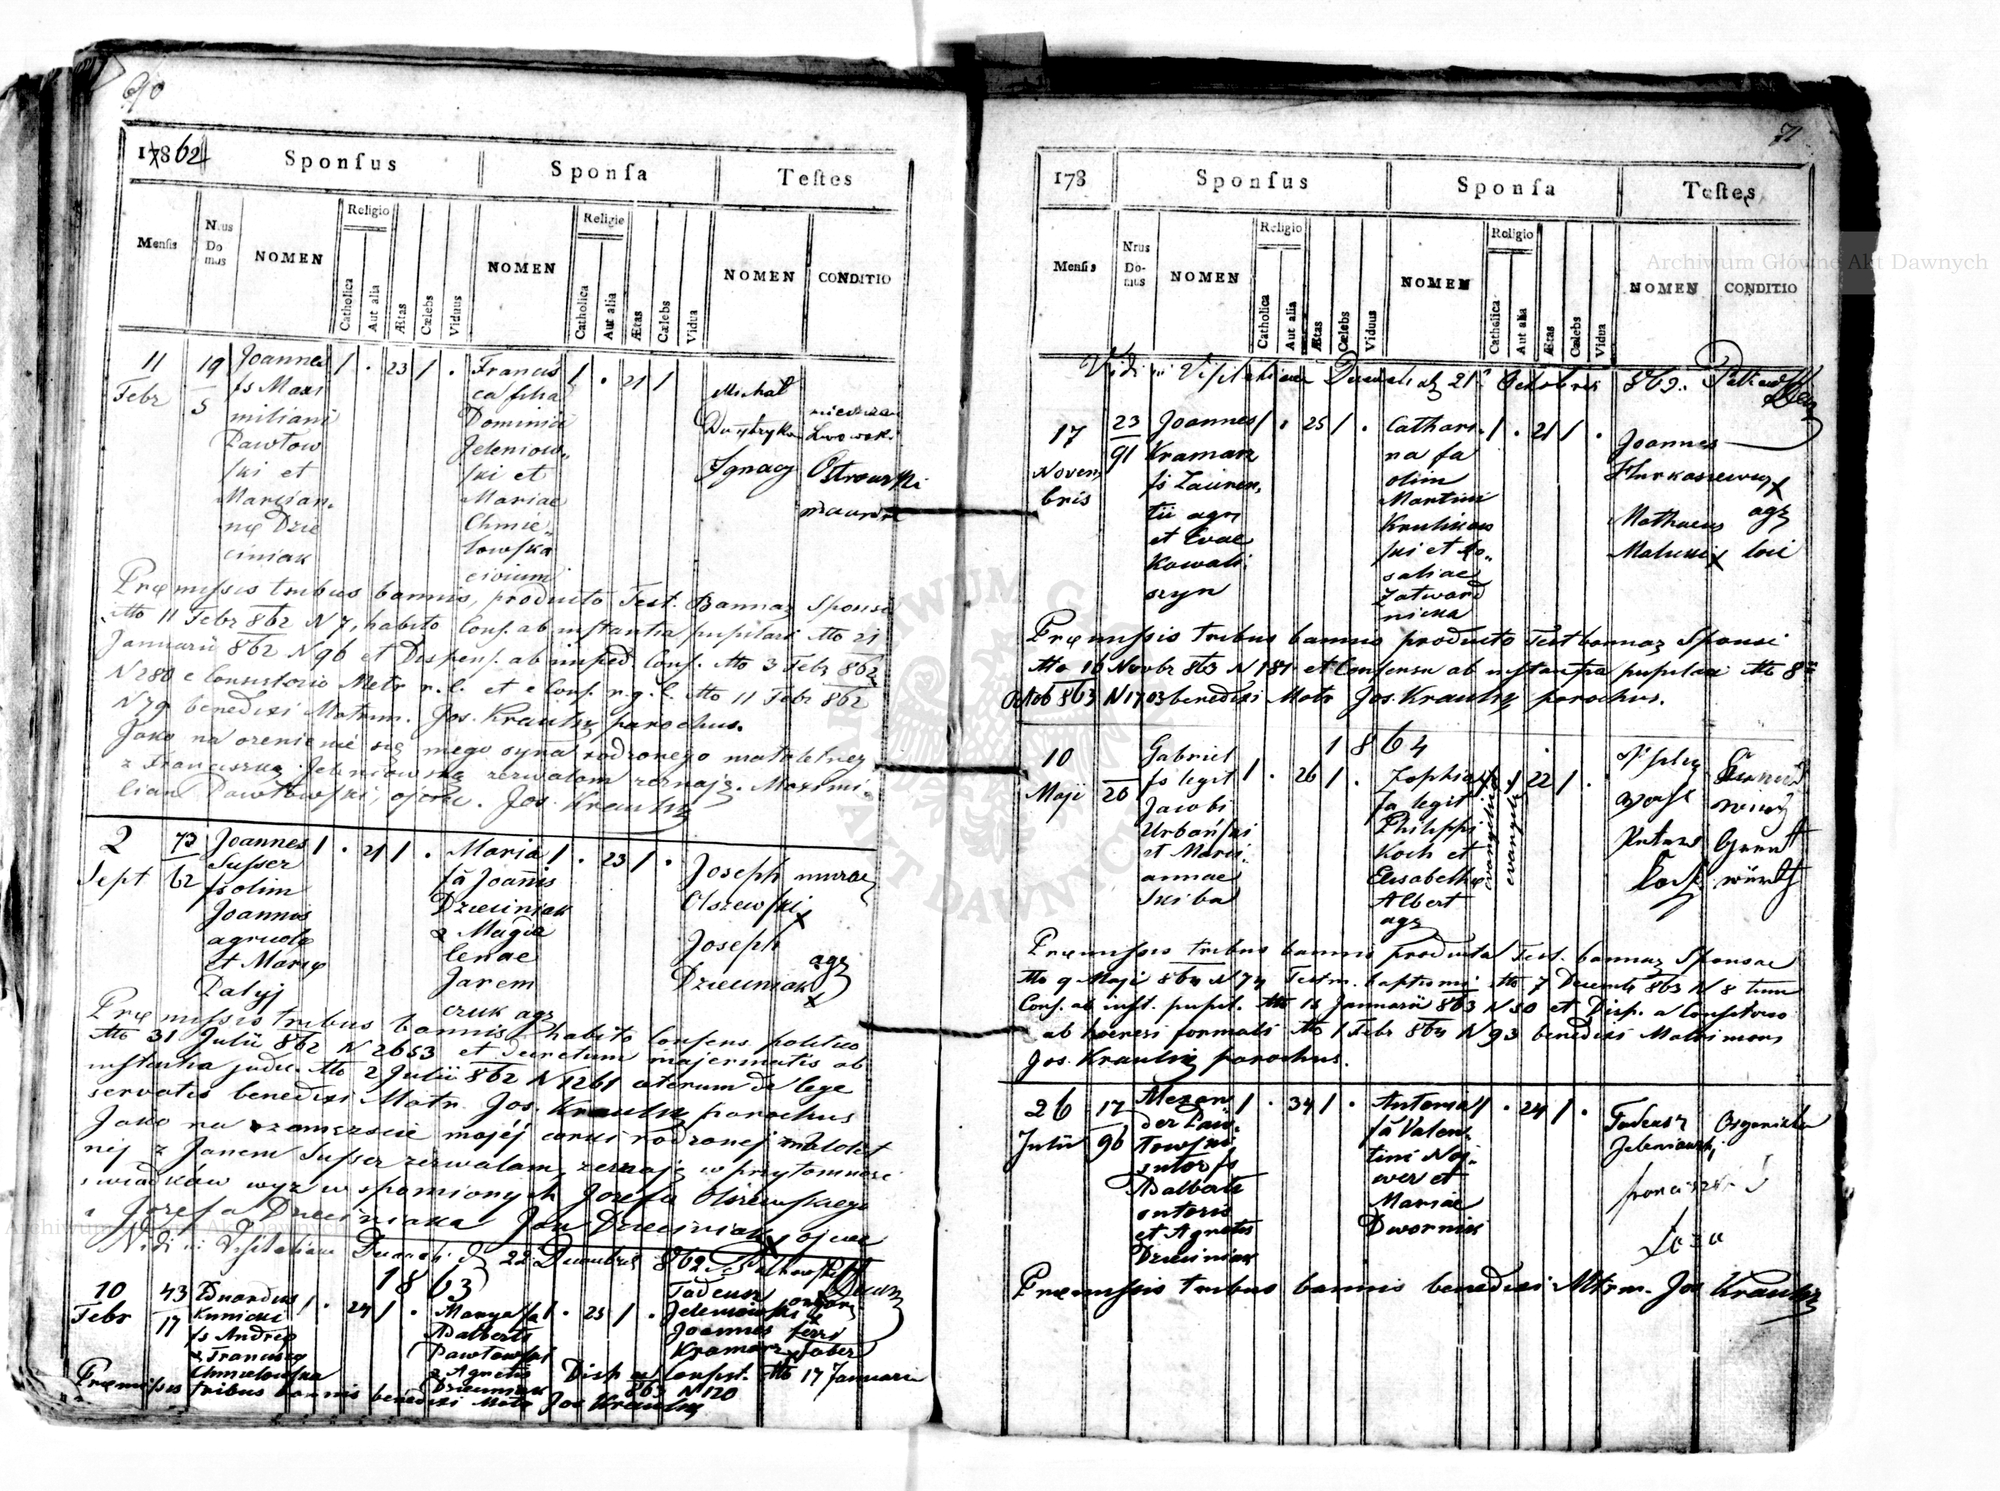 17862
Sponsus
Sponsa
Testes
Mensis
Nrus Domus
NOMEN
Religio
Catholica
Aut alia
Ætas
Cælebs
Viduus
NOMEN
Religio
Catholica
Aut alia
Ætas
Cælebs
Vidua
NOMEN
CONDITIO
11
Febr
19
5
Joannes
fs Maxi
miliani
Pawłow
ski et
Marcian.
nę Dzie
ciniak
1 . 23 1 .
Francis
ca filia
Dominici
Jeleniow
ski et
Mariae
Chmie
lowska
civium
1 . 21 1
Michał
Ignacy Ostrowski
Præmissis tribus bannis, producto Test. Bannar Sponsi
tto 11 Febr 862 N 7, habito Cons. ab instantia pupilari tto 21
Januarii 862 N 96 et Dispens. ab imped. Cons. tto 3 Febr 862
N 280 e Consistorio Metr r. l. et e Cons. r. g. c. tto 11 Febr 862
N 79 benedixi Matrim. Jos. Kraulig parochus.
Jako na ożenienie się mego syna rodzonego małoletniego
z Franciszką Jeleniowską zezwalam zeznaję. Maximi
lian Pawłowski, ojciec. Jos. Kraulig
2
Sept
73
62
Joannes
Susser
fs olim
Joannis
agricolę
et Marię
Patyj
1 . 21 1 .
Maria
fa Joannis
Dzieciniak
& Magda
lenae
Jarem
czuk agr
1 . 23 1 .
Joseph
Olszewski x
Joseph
Dzieciniak x
agr
Præmissis tribus bannis, habito Consens. politico
tto 31 Julii 862 N 2653 et Decretum majorennitatis ab
instantia judic. tto 2 Julii 862 N 1261 ceterum de lege
servatis benedixi Matr. Jos. Kraulig parochus
Jako na zamęzcie mojéj córki rodzonej małolet
niej z Janem Susser zezwalam, zeznaję w przytomności
świadków wyż wspomionych Jozefa Olszewskiego
i Jozefa Dzieciniaka Jan Dzieciniak x ojciec
Vidi in Visitatione Decanali d 22 Decembris 862
1863
10
Febr
43
17
Eduardus
Kunicki
fs Andreę
& Franciscę
Chmielowska
1 . 24 1 .
Marya fa
Adalberti
Pawłowski
& Agnetis
Dzieciniak
1 . 25 1 .
Tadeusz
Jeleniowski
Joannes
Kramarz
organ
ferri
faber
Disp a Consist. tto 17 Januarii
863 N 120
Præmissis tribus bannis benedixi Matr Jos Kraulig
71
178
Sponsus
Sponsa
Testes
Mensis
Nrus Domus
NOMEN
Religio
Catholica
Aut alia
Ætas
Cælebs
Viduus
NOMEN
Religio
Catholica
Aut alia
Ætas
Cælebs
Vidua
NOMEN
CONDITIO
Vidi in Visitatione Decanali 21 Octobris 863.
17
Novem
bris
23
91
Joannes
Kramarz
fs Lauren,
tii agr
et Evae
Kowali
szyn
1 . 25 1 .
Cathari
na fa
olim
Martini
Krulikow
ski et Ro
saliae
Zatward
nicka
1 . 21 1 .
Joannes
x
Mathaeus
x
agr
loci
Præmissis tribus bannis producto Test bannar Sponsi
tto 16 Novbr 863 N 181 et Consensu ab instantia pupilari tto 8
Octob 863 N 1703 benedixi Matr Jos. Kraulig parochus.
1864
10
Maji
26
Gabriel
fs legit
Jacobi
Urbański
et Mari
annae
Skiba
1 . 26 1 .
Zophia
fa legit
Philippi
Koch et
Elisabethę
Albert
agr
evangelica
22 1 .
Præmissis tribus bannis producta Test. bannar Sponsae
tto 9 Maji 864 N 74 Testm. baptismi tto 7 Decemb 863 N 8 tum
Cons. ab inst. pupil. tto 16 Januarii 863 N 50 et Disp. a Consistorio
ab haeresi formali tto 1 Febr 864 N 93 benedixi Matrimon
Jos. Kraulig parochus.
26
Julii
17
96
Alexan
der Paw
łowski
sutor fs
Adalberti
sutoris
et Agnetis
Dzieciniak
1 . 34 1 .
Antonia
fa Valen
tini Naj
wer et
Mariae
Dwornik
1 . 24 1 .
Tadeusz
Jeleniowski
Organista
Præmissis tribus bannis benedixi Mtrm. Jos Kraulig
Archiwum Główne Akt Dawnych
ARCHIWUM GŁÓWNE AKT DAWNYCH
Archiwum Główne Akt Dawnych